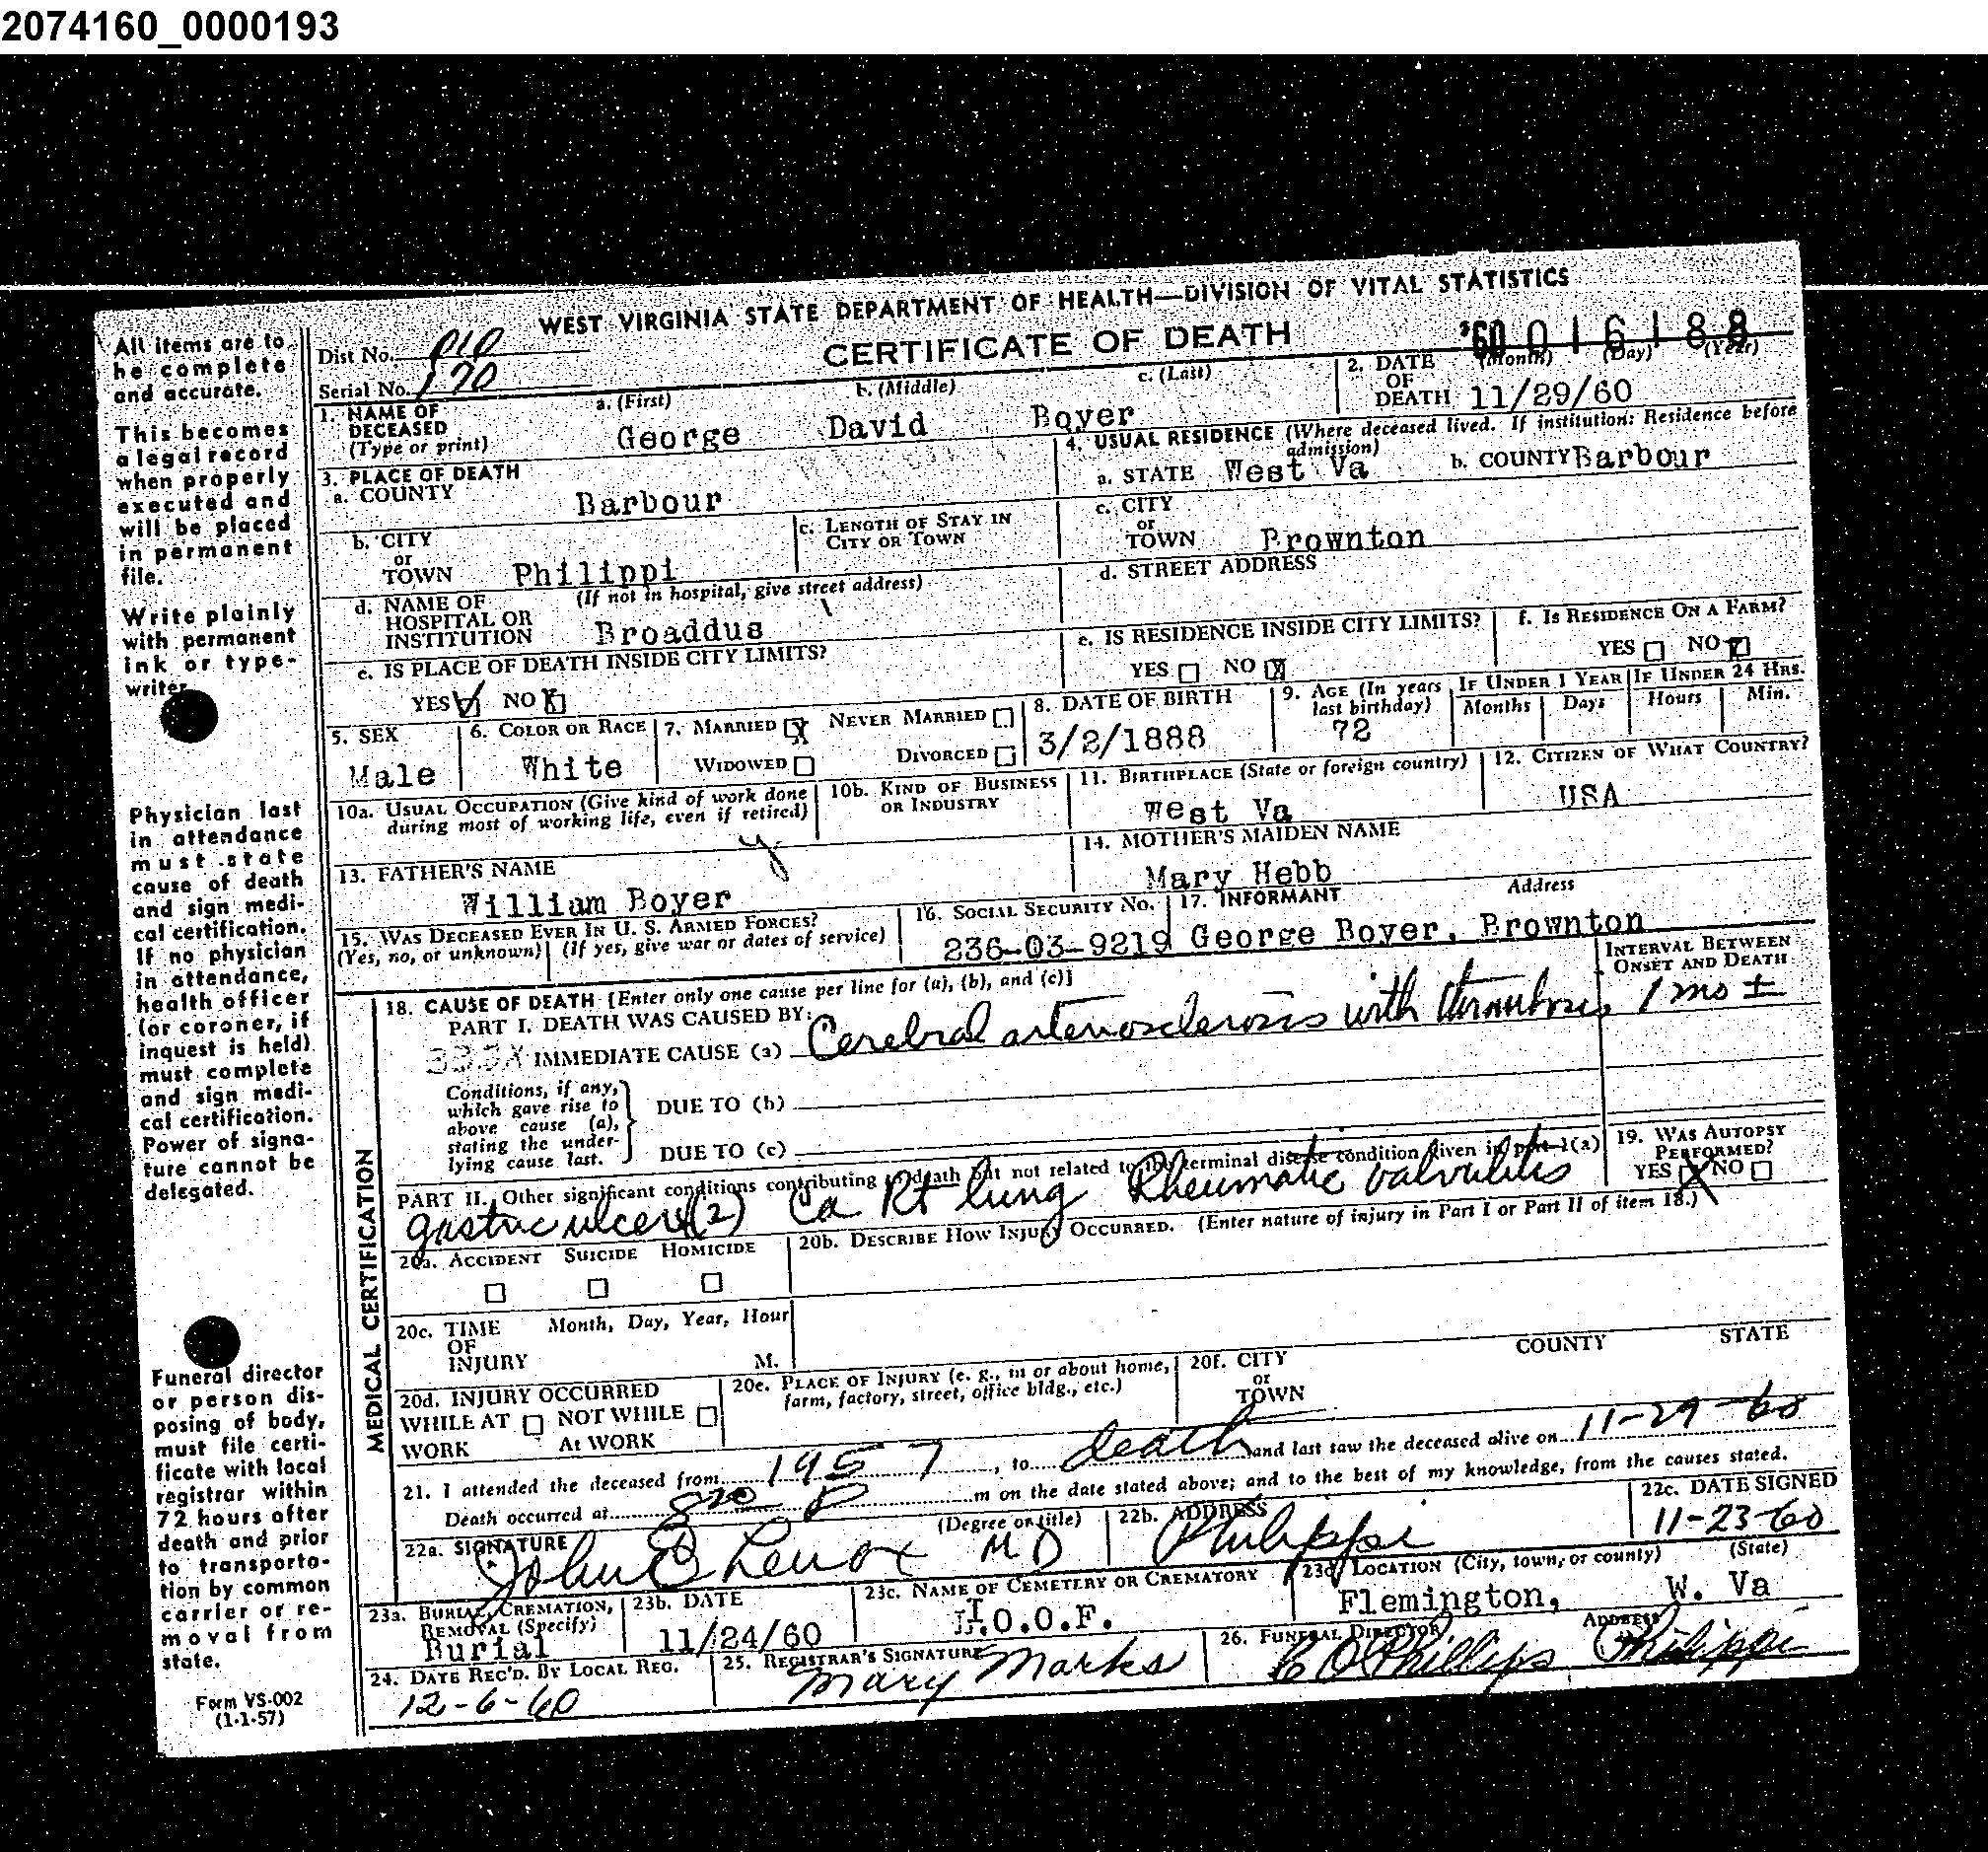 2074160_0000193
WEST VIRGINIA STATE DEPARTMENT OF HEALTH—DIVISION OF VITAL STATISTICS
CERTIFICATE OF DEATH
'60 016188
Dist No. 010
Serial No. 170
1. NAME OF DECEASED (Type or print)
a. (First) b. (Middle) c. (Last)
George David Boyer
2. DATE OF DEATH (Month) (Day) (Year)
11/29/60
3. PLACE OF DEATH
a. COUNTY Barbour
b. CITY or TOWN Philippi
c. LENGTH OF STAY IN CITY OR TOWN
d. NAME OF HOSPITAL OR INSTITUTION (If not in hospital, give street address)
Broaddus
e. IS PLACE OF DEATH INSIDE CITY LIMITS?
YES NO
4. USUAL RESIDENCE (Where deceased lived. If institution: Residence before admission)
a. STATE West Va b. COUNTY Barbour
c. CITY or TOWN Brownton
d. STREET ADDRESS
e. IS RESIDENCE INSIDE CITY LIMITS?
YES NO X
f. IS RESIDENCE ON A FARM?
YES NO
5. SEX Male
6. COLOR OR RACE White
7. MARRIED X NEVER MARRIED
WIDOWED DIVORCED
8. DATE OF BIRTH 3/2/1888
9. AGE (In years last birthday) 72
IF UNDER 1 YEAR Months Days
IF UNDER 24 HRS. Hours Min.
10a. USUAL OCCUPATION (Give kind of work done during most of working life, even if retired)
10b. KIND OF BUSINESS OR INDUSTRY
11. BIRTHPLACE (State or foreign country) West Va
12. CITIZEN OF WHAT COUNTRY? USA
13. FATHER'S NAME William Boyer
14. MOTHER'S MAIDEN NAME Mary Hebb
15. WAS DECEASED EVER IN U. S. ARMED FORCES?
(Yes, no, or unknown) (If yes, give war or dates of service)
16. SOCIAL SECURITY NO. 236-03-9219
17. INFORMANT Address
George Boyer, Brownton
MEDICAL CERTIFICATION
18. CAUSE OF DEATH [Enter only one cause per line for (a), (b), and (c)]
PART I. DEATH WAS CAUSED BY:
IMMEDIATE CAUSE (a) Cerebral arteriosclerosis with thrombosis
INTERVAL BETWEEN ONSET AND DEATH
1 mo ±
Conditions, if any, which gave rise to above cause (a), stating the underlying cause last.
DUE TO (b)
DUE TO (c)
PART II. Other significant conditions contributing to death but not related to the terminal disease condition given in part 1(a)
gastric ulcers (2) Ca Rt lung Rheumatic valvulitis
19. WAS AUTOPSY PERFORMED?
YES NO
20a. ACCIDENT SUICIDE HOMICIDE
20b. DESCRIBE HOW INJURY OCCURRED. (Enter nature of injury in Part I or Part II of item 18.)
20c. TIME OF INJURY Month, Day, Year, Hour
M.
20d. INJURY OCCURRED
WHILE AT WORK NOT WHILE At WORK
20e. PLACE OF INJURY (e. g., in or about home, farm, factory, street, office bldg., etc.)
20f. CITY or TOWN COUNTY STATE
21. I attended the deceased from 1957, to death and last saw the deceased alive on 11-29-60
Death occurred at 8 20 P m on the date stated above; and to the best of my knowledge, from the causes stated.
22a. SIGNATURE (Degree or title)
John E Lenox MD
22b. ADDRESS Philippi
22c. DATE SIGNED 11-23-60
23a. BURIAL, CREMATION, REMOVAL (Specify) Burial
23b. DATE 11/24/60
23c. NAME OF CEMETERY OR CREMATORY I.O.O.F.
23d. LOCATION (City, town, or county) (State)
Flemington, W. Va
24. DATE REC'D. BY LOCAL REG. 12-6-60
25. REGISTRAR'S SIGNATURE Mary Marks
26. FUNERAL DIRECTOR ADDRESS
Phillips Philippi
All items are to
be complete
and accurate.
This becomes
a legal record
when properly
executed and
will be placed
in permanent
file.
Write plainly
with permanent
ink or type-
writer
Physician last
in attendance
must state
cause of death
and sign medi-
cal certification.
If no physician
in attendance,
health officer
(or coroner, if
inquest is held)
must complete
and sign medi-
cal certification.
Power of signa-
ture cannot be
delegated.
Funeral director
or person dis-
posing of body,
must file certi-
ficate with local
registrar within
72 hours after
death and prior
to transporta-
tion by common
carrier or re-
moval from
state.
Form VS-002
(1-1-57)